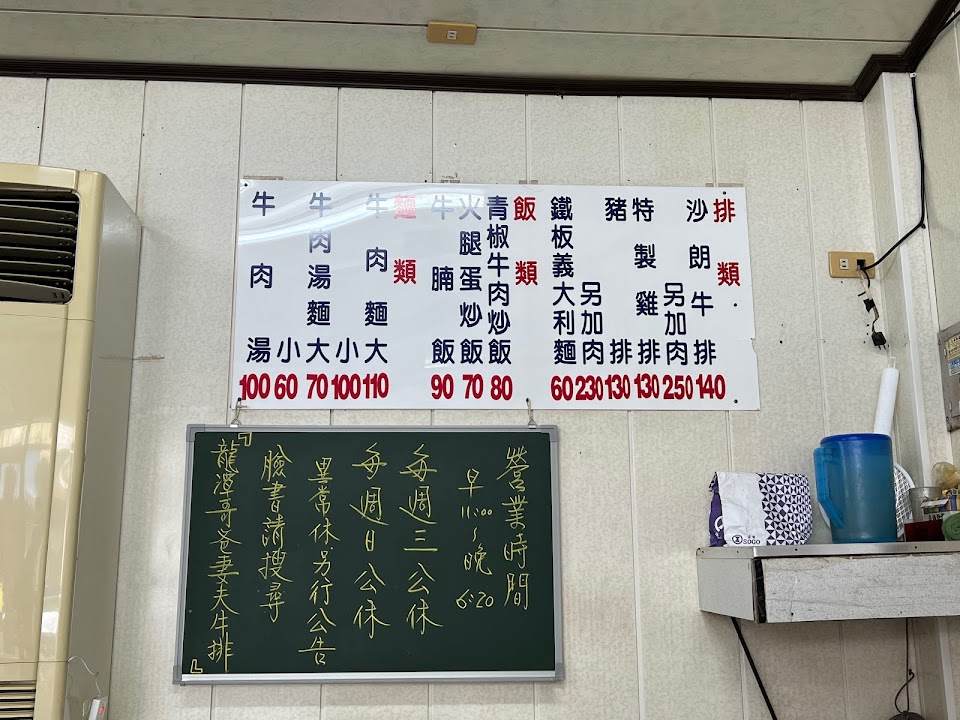 排類
沙朗牛排 140
另加肉 250
特製雞排 130
豬排 130
另加肉 230
鐵板義大利麵 60
飯類
青椒牛肉炒飯 80
火腿蛋炒飯 70
牛腩飯 90
麵類
牛肉麵大 110
小 100
牛肉湯麵大 70
小 60
牛肉湯 100
營業時間
早11:00~晚6:20
每週三公休
每週日公休
異常休另行公告
臉書請搜尋
『龍潭哥爸妻夫牛排』
SOGO